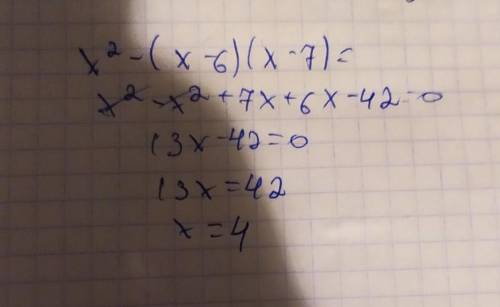 x² - (x - 6)(x - 7) =
x² - x² + 7x + 6x - 42 = 0
13x - 42 = 0
13x = 42
x = 4